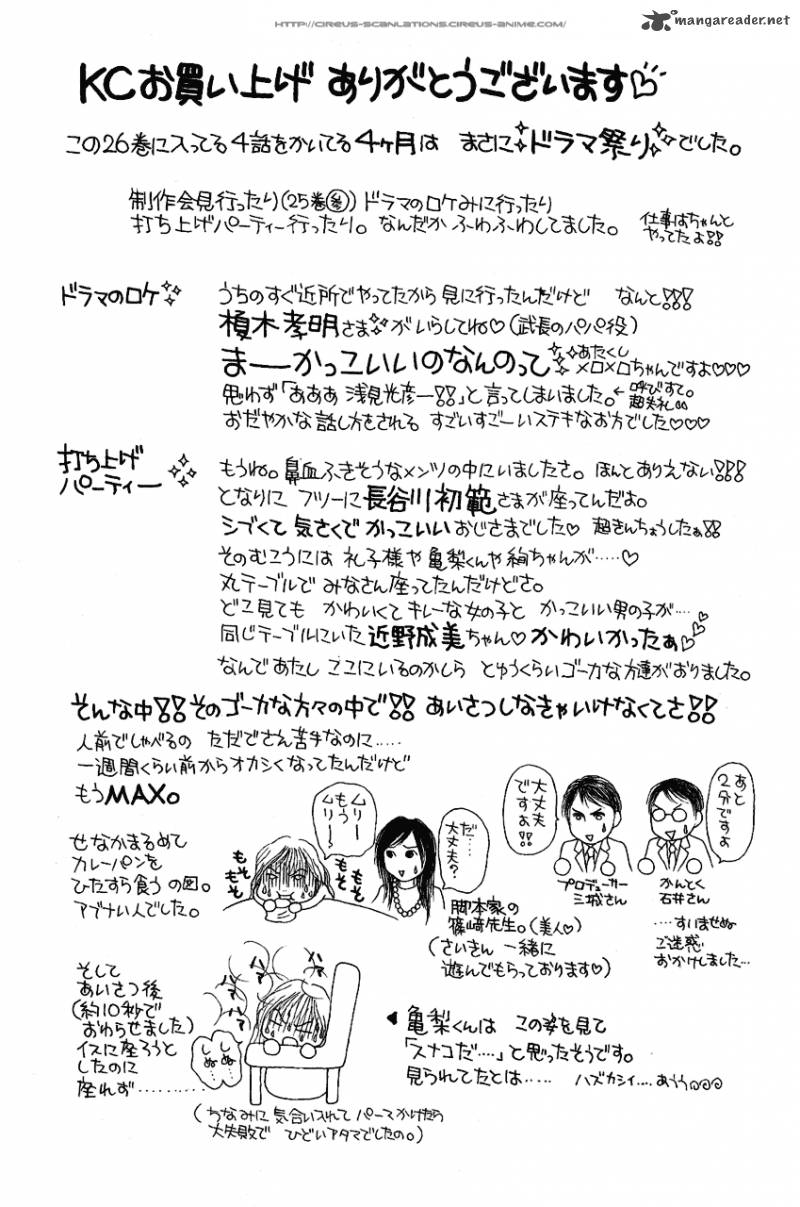 HTTP://CIREUS-SCANLATIONS.CIREUS-ANIME.COM/
mangareader.net
KCお買い上げ ありがとうございます♡
この26巻に入ってる4話をかいてる4ヶ月は まさにドラマ祭りでした。
制作会見行ったり(25巻参)ドラマのロケみに行ったり
打ち上げパーティー行ったり。なんだか ふわふわしてました。
仕事はちゃんと
やってたよ!!
ドラマのロケ
うちのすぐ近所でやってたから 見に行ったんだけど なんと!!!
榎木孝明さまがいらしてね♡(武長のパパ役)
まーーかっこいいのなんのって
あたくし
メロメロちゃんですよ♡♡♡
思わず「あああ 浅見光彦ー!!」と言ってしまいました。
←呼びすて。
超失礼。
おだやかな話し方をされる すごいすごーいステキなお方でした♡♡♡
打ち上げ
パーティー
もうね。鼻血ふきそうなメンツの中にいましたさ。ほんとありえない!!!
となりに フツーに長谷川初範さまが座ってんだよ。
シブくて 気さくで かっこいい おじさまでした♡ 超きんちょうしたぁ!!
そのむこうには 礼子様や亀梨くんや絢ちゃんが……♡
丸テーブルで みなさん座ってたんだけどさ。
どこ見ても かわいくて キレーな女の子と かっこいい男の子が…
同じテーブルにいた近野成美ちゃん♡かわいかったぁ♡
なんであたし ここにいるのかしら とゆうくらいゴーカな方達がおりました。
そんな中!!そのゴーカな方々の中で!! あいさつしなきゃいけなくてさ!!
人前でしゃべるの ただでさえ苦手なのに……
一週間くらい前からオカシくなってたんだけど
もうMAX。
せなかまるめて
カレーパンを
ひたすら食うの図。
アブナい人でした。
もそ もそ
もそ もそ
ムリー
もう
ムリー
だ…
大丈夫?
脚本家の
篠﨑先生。(美人♡)
(さいきん 一緒に
遊んでもらっております♡)
大丈夫
ですよ!!
プロデューサー
三城さん
あと
2分ですよ
かんとく
石井さん
…すいませぬ
ご迷惑
おかけしました…
そして
あいさつ後
(約10秒で
おわらせました)
イスに座ろうと
したのに
座れず………
しぬ
しぬ
ハァ ハァ
ハァ
(ちなみに 気合い入れて パーマかけたら
大失敗で ひどいアタマでしたの。)
亀梨くんは この姿を見て
「スナコだ…」と思ったそうです。
見られてたとは…… ハズカシイ…。あうう。。。